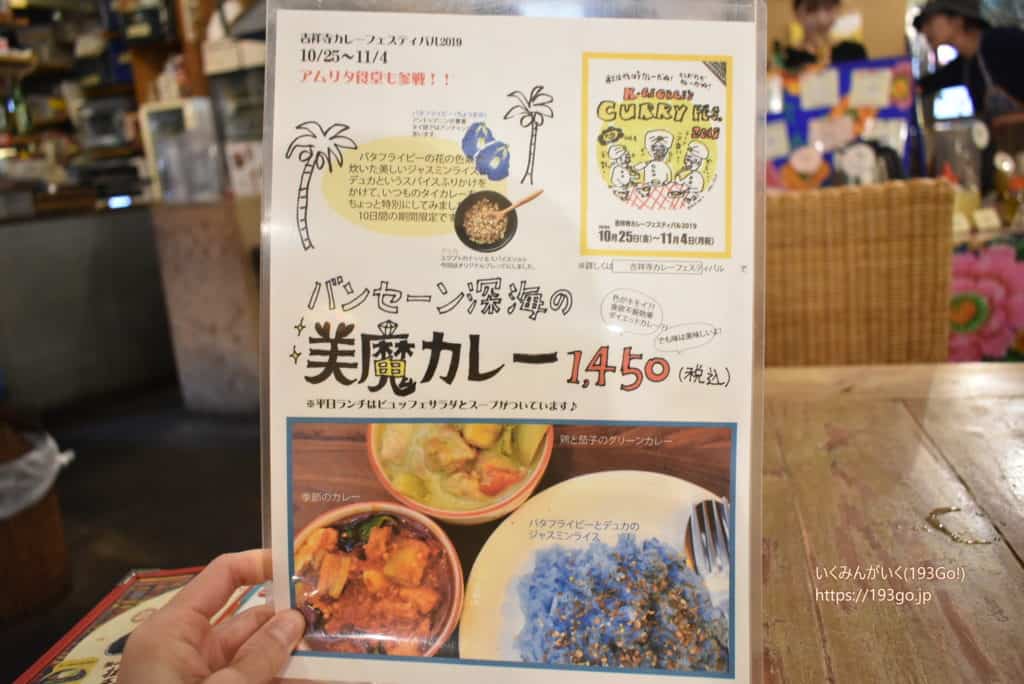 吉祥寺カレーフェスティバル2019
10/25〜11/4
アムリタ食堂も参戦！！
バタフライピーの花の色
炊いた美しいジャスミンライス
デュカというスパイスふりかけを
かけて、いつものタイカレー
ちょっと特別にしてみまし
10日間の期間限定です
CURRY FES.
吉祥寺カレーフェスティバル2019
10月25日(金)〜11月4日(月祝)
※詳しくは 吉祥寺カレーフェスティバル で
バンセーン深海の
美魔カレー 1,450 (税込)
色がキモイ?!
食欲不振効果
ダイエットカレー?!
でも味は美味しいよ!
※平日ランチはビュッフェサラダとスープがついています♪
鶏と茄子のグリーンカレー
季節のカレー
バタフライピーとデュカの
ジャスミンライス
いくみんがいく(193Go!)
https://193go.jp